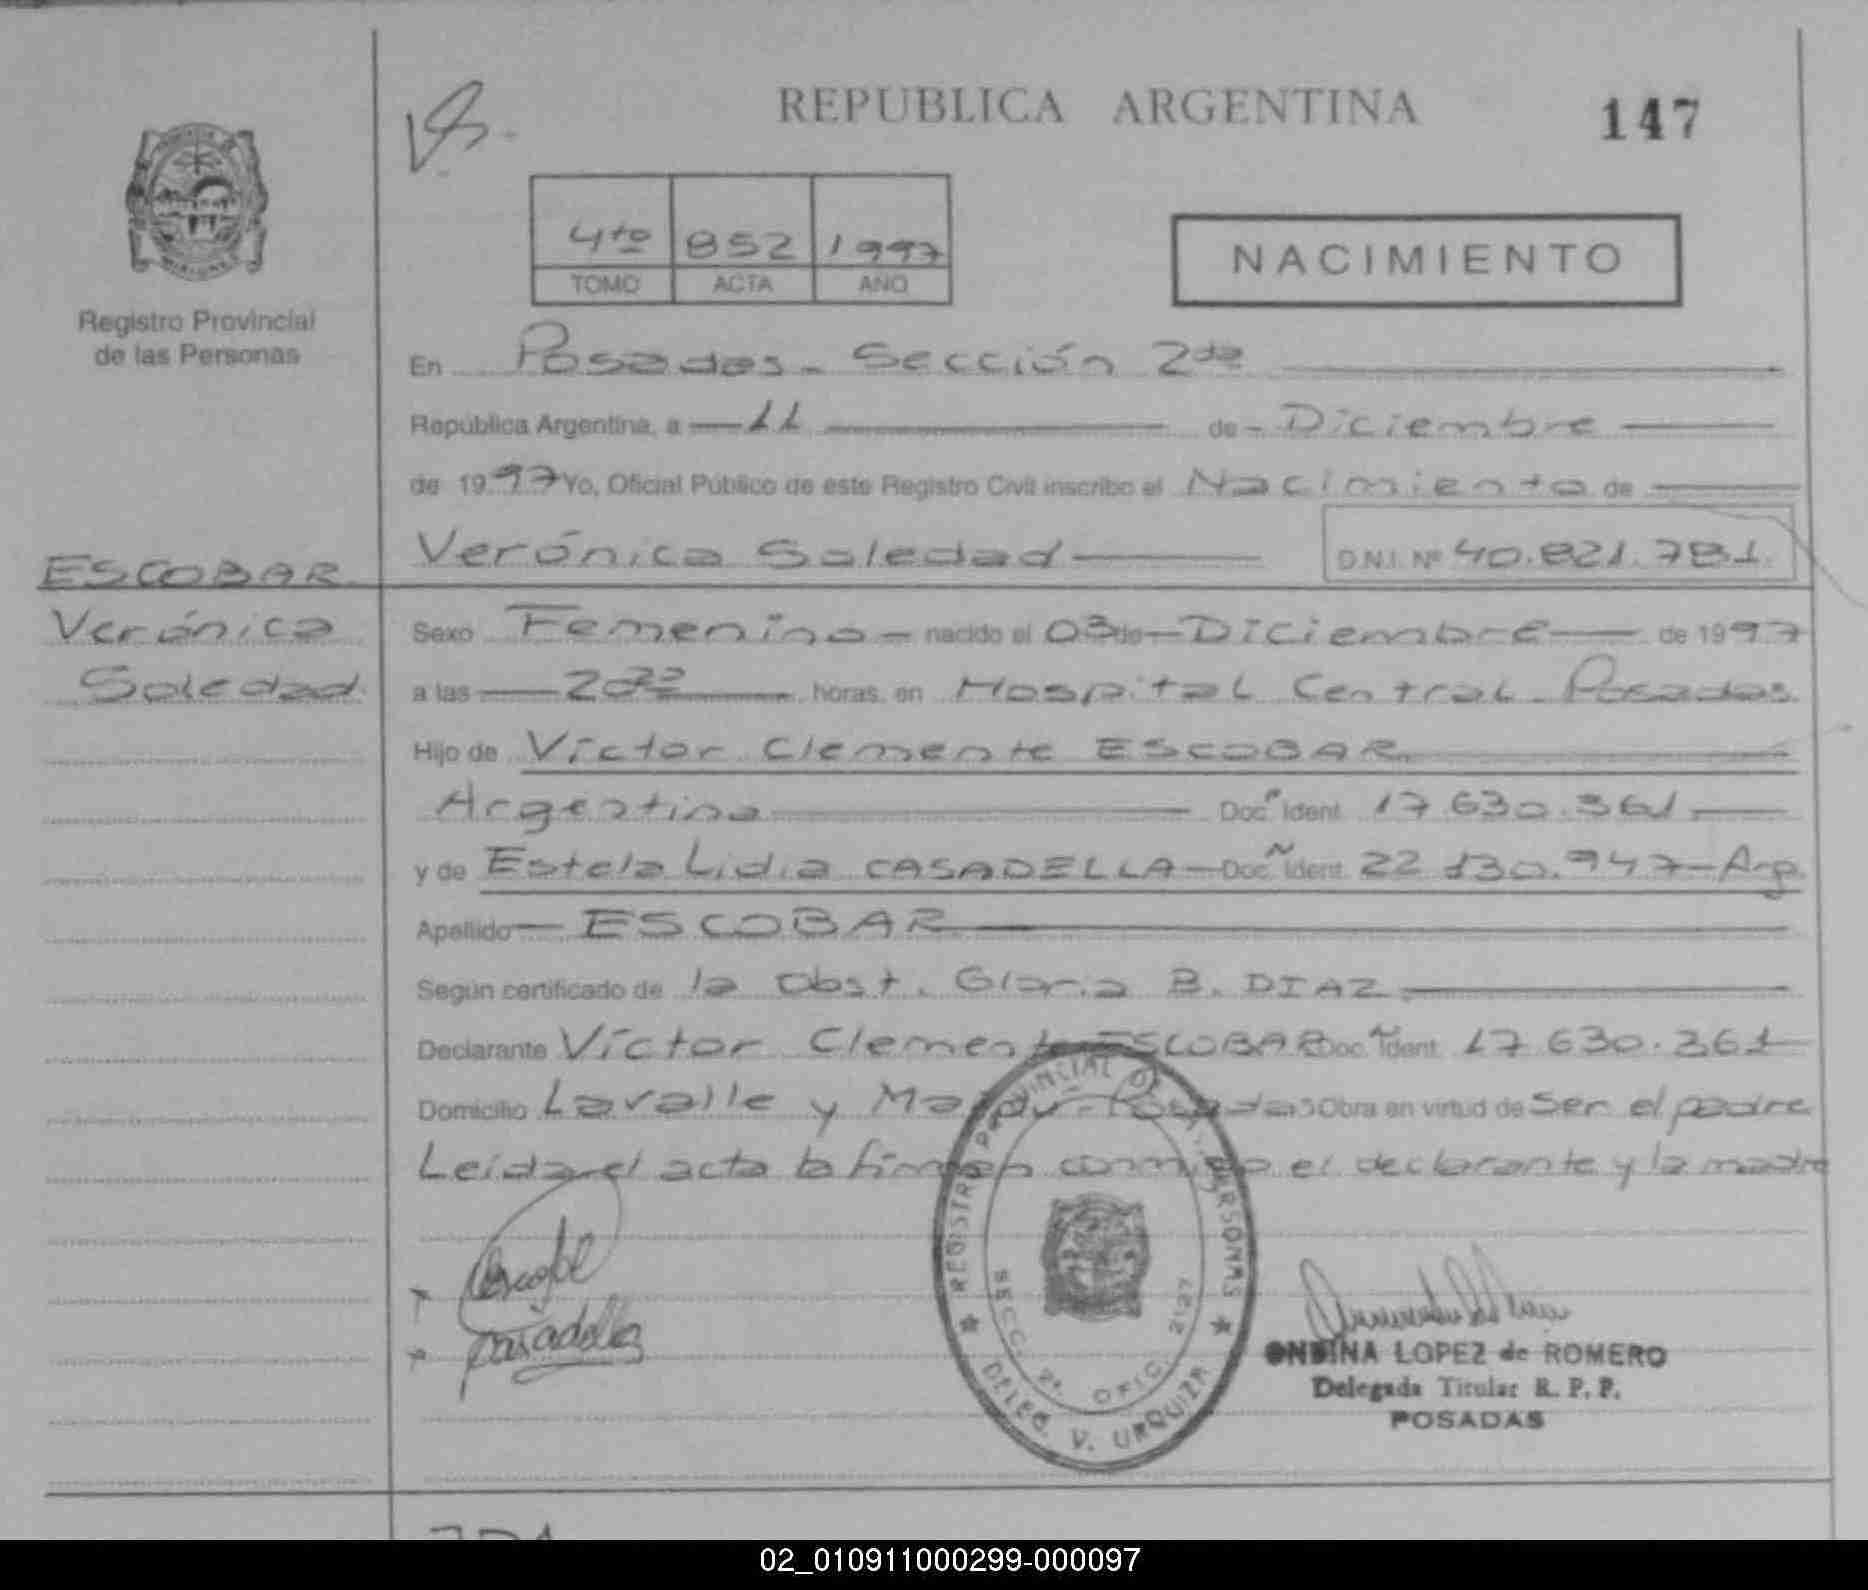 REPUBLICA ARGENTINA
147
4to 852 1997
TOMO ACTA AÑO
NACIMIENTO
Registro Provincial
de las Personas
En Posadas - Sección 2da
República Argentina, a 11 de Diciembre
de 1997 Yo, Oficial Público de este Registro Civil inscribo el Nacimiento de
Verónica Soledad D.N.I. Nº 40.821.781.
ESCOBAR
Verónica
Soledad
Sexo Femenino nacido el 03 de Diciembre de 1997
a las horas, en Hospital Central - Posadas
Hijo de Víctor Clemente ESCOBAR
Argentino Doc. Ident. 17.630.361
y de Estela Lidia CASADELLA Doc. Ident. 22.130.947 - Arg.
Apellido ESCOBAR
Según certificado de la Obst. Gloria B. DIAZ
Declarante Víctor Clemente ESCOBAR Doc. Ident. 17.630.361
Domicilio Lavalle y Posadas Obra en virtud de ser el padre
Leída el acta la firman conmigo el declarante y la madre
Casadella
REGISTRO PROVINCIAL DE LAS PERSONAS
SECC. 2ª. OFIC. 2127
DELEG. V. URQUIZA
ONDINA LOPEZ de ROMERO
Delegada Titular R. P. P.
POSADAS
02_010911000299-000097